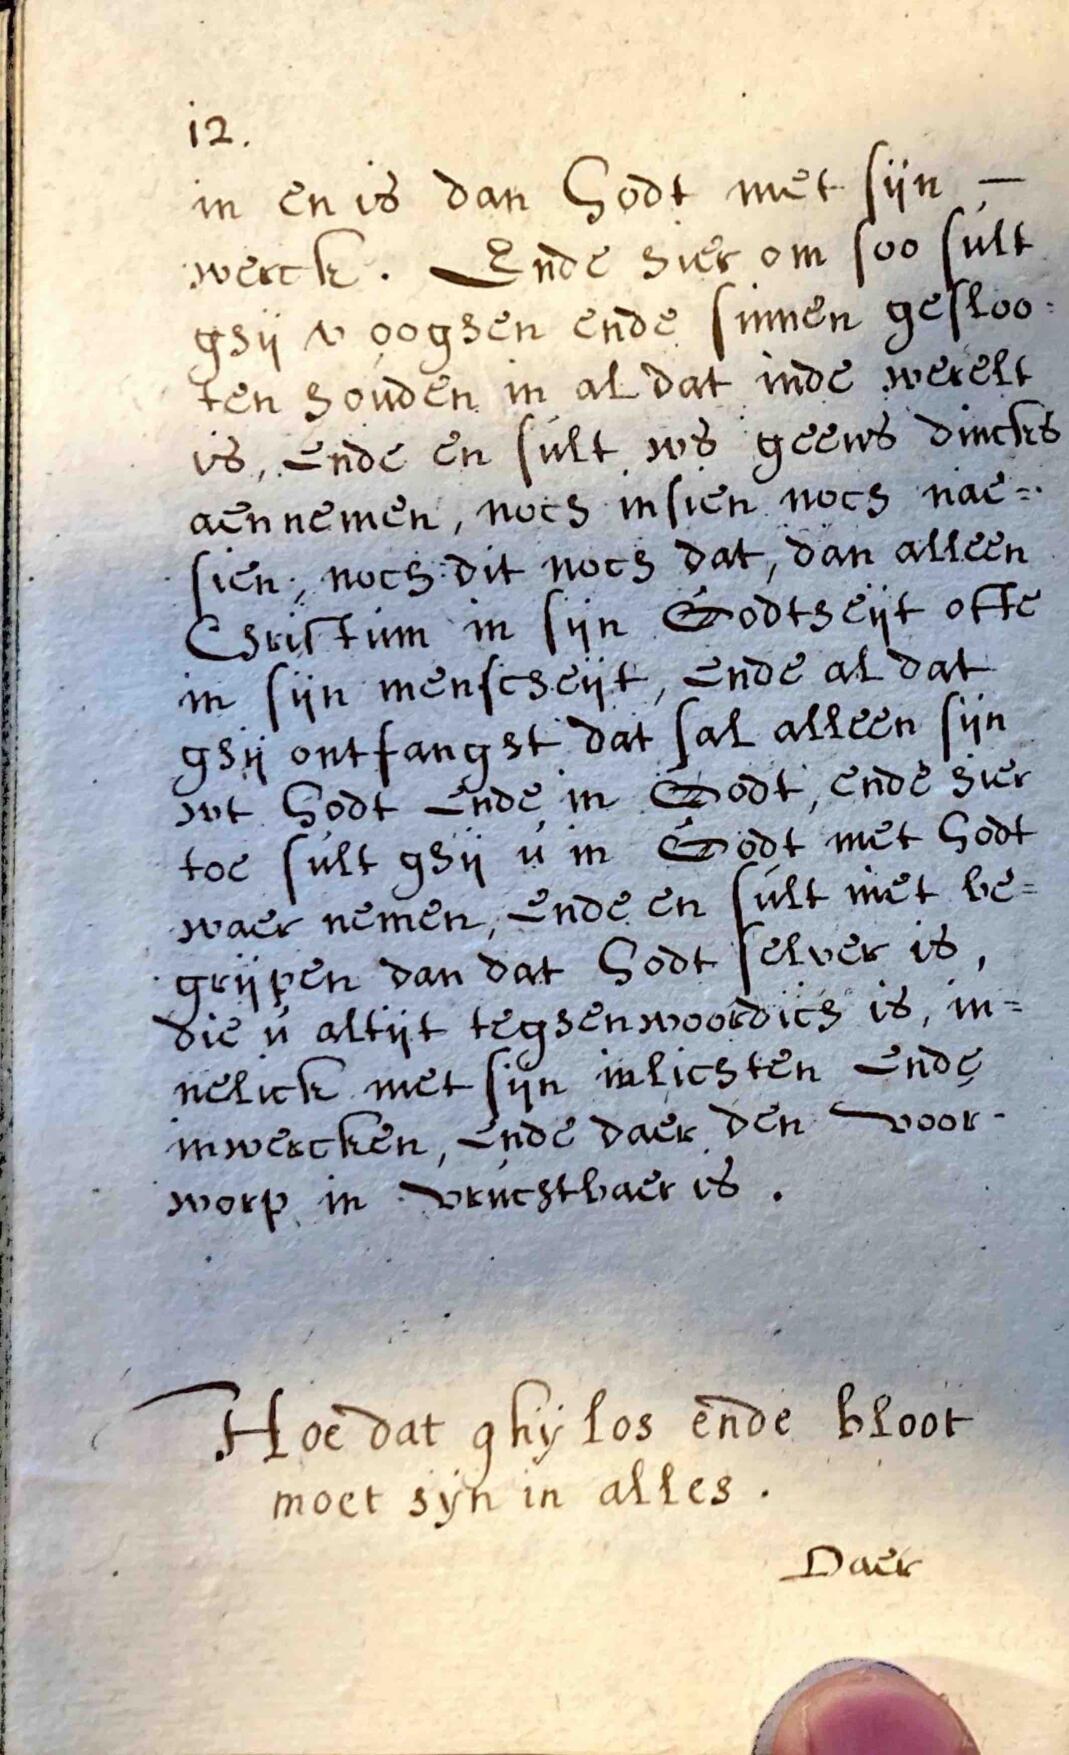 12.
in en is dan Godt met sijn –
werck. Ende hier om soo sult
ghij v ooghen ende sinnen gesloo=
ten houden in al dat inde werelt
is, Ende en sult ws geens dincks
aennemen, noch insien noch nae=
sien, noch dit noch dat, dan alleen
Christum in sijn Godtheijt ofte
in sijn menscheijt, Ende al dat
ghij ontfanght dat sal alleen sijn
wt Godt Ende in Godt, ende hier
toe sult ghij u in Godt met Godt
waer nemen, Ende en sult niet be=
grijpen dan dat Godt selver is,
die u altijt teghenwoordich is, in=
nelick met sijn inlichten Ende
inwercken, Ende daer den voor-
worp in vruchtbaer is.
Hoe dat ghij los ende bloot
moet sijn in alles.
Daer